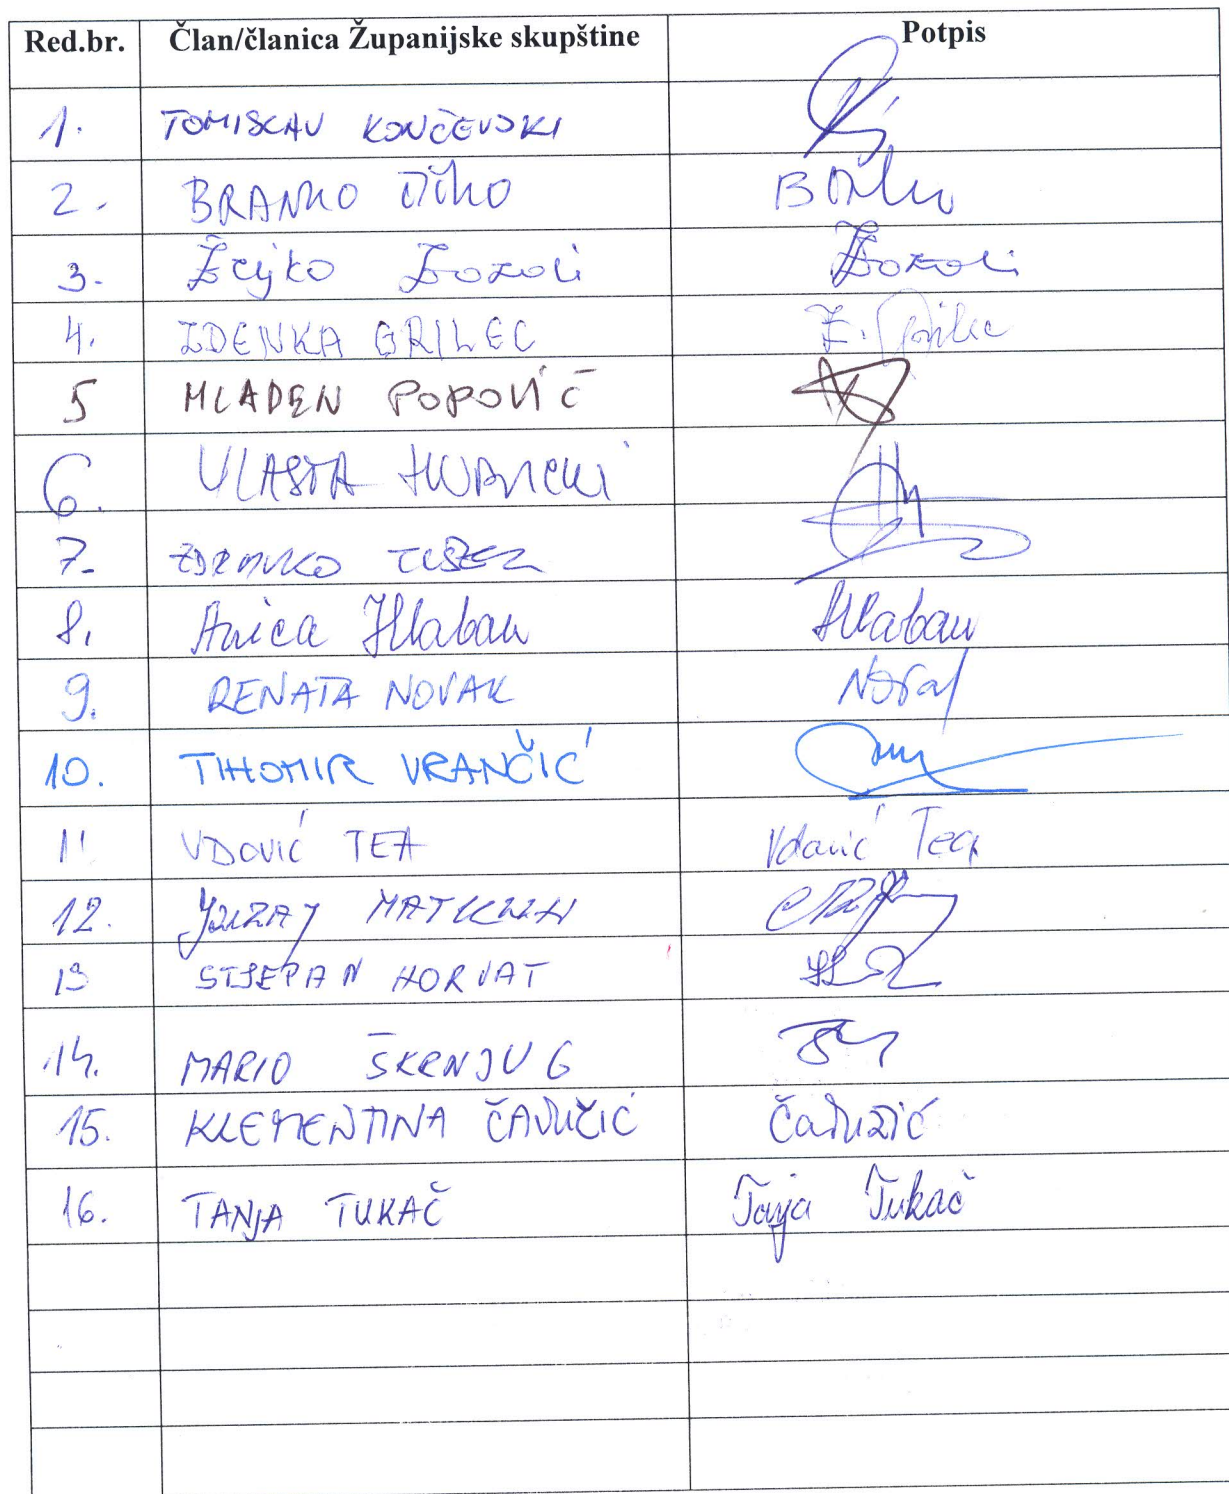 Red.br. Član/članica Županijske skupštine Potpis
1. TOMISLAV KONČEVSKI
2. BRANKO
3. Željko
4. ZDENKA GRILEC Z. Grilec
5 MLADEN POPOVIĆ
6. VLASTA HUBICKI
7. ZDRAVKO
8. Anica Hlaban Hlaban
9. RENATA NOVAK Novak
10. TIHOMIR VRANČIĆ
11 VDOVIĆ TEA Vdović Tea
12. JURAJ
13 STJEPAN HORVAT
14. MARIO ŠKRNJUG
15. KLEMENTINA
16. TANJA TUKAČ Tanja Tukač